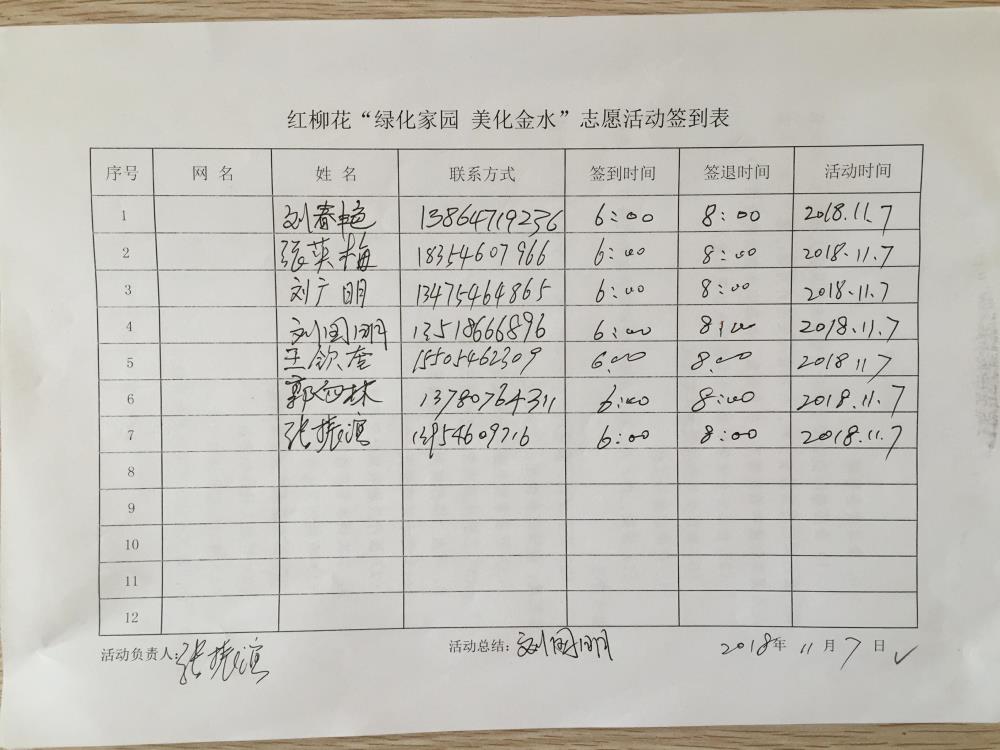 红柳花“绿化家园 美化金水”志愿活动签到表
序号 网名 姓名 联系方式 签到时间 签退时间 活动时间
1 刘春艳 13864719236 6:00 8:00 2018.11.7
2 张英梅 18354607966 6:00 8:00 2018.11.7
3 刘广明 13475464865 6:00 8:00 2018.11.7
4 刘国明 13518666896 6:00 8:00 2018.11.7
5 王钦奎 15505462309 6:00 8:00 2018 11 7
6 郭 林 13780764311 6:00 8:00 2018.11.7
7 张振滨 13954609716 6:00 8:00 2018.11.7
8
9
10
11
12
活动负责人:张振滨 活动总结:刘国明 2018年 11月 7日 ✓